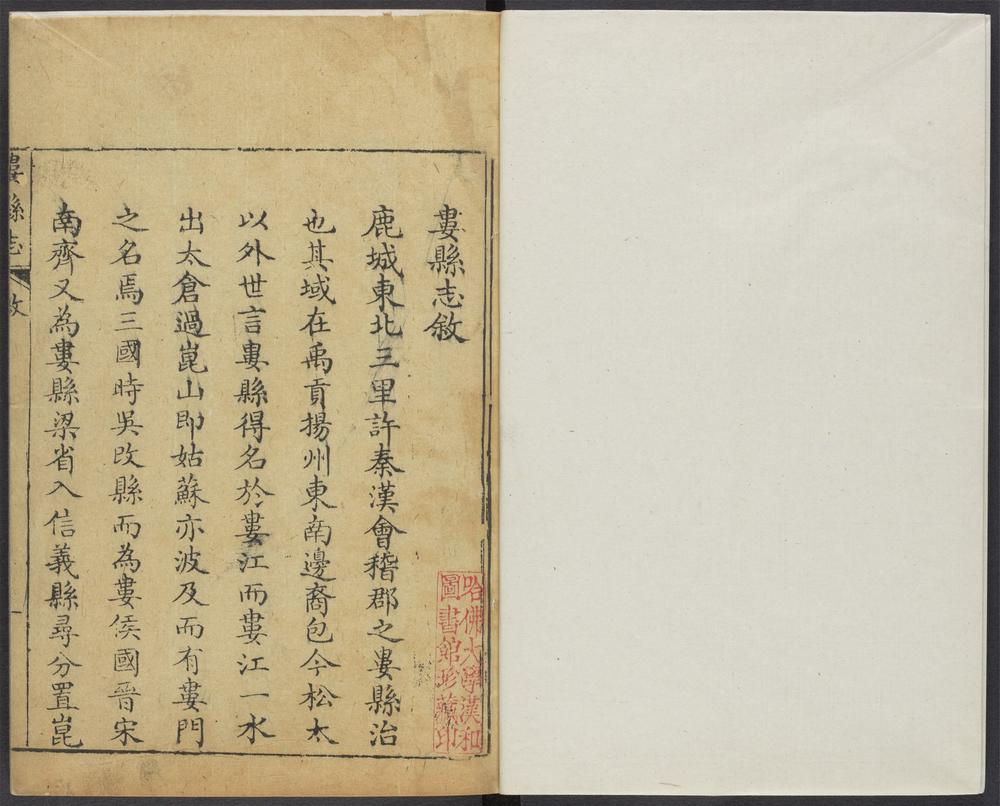 婁縣志敘
鹿城東北三里許秦漢會稽郡之婁縣治
也其域在禹貢揚州東南邊裔包今松太
以外世言婁縣得名於婁江而婁江一水
出太倉過崑山即姑蘇亦波及而有婁門
之名焉三國時吳改縣而為婁侯國晉宋
南齊又為婁縣梁省入信義縣尋分置崑
婁縣志
敘
一
哈佛大學漢和
圖書館珍藏印